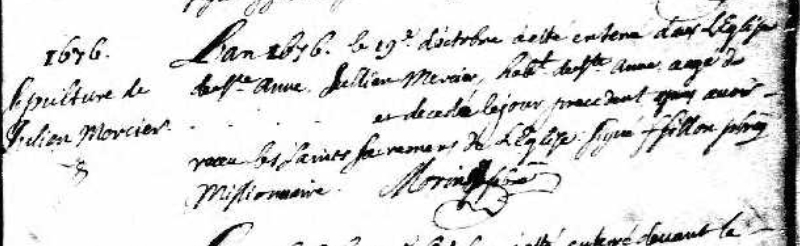 1676.
Sepulture de
Julien Mercier
L'an 1676. le 19e. d'octobre a esté enterré dans l'Eglise
de Ste Anne Jullien Mercier, habt. de Ste Anne aagé de
et decedé le jour precedent apres avoir
receu les Saints Sacremens de l'Eglise. signé ffillon
Missionnaire. Morin
esté enterré devant la